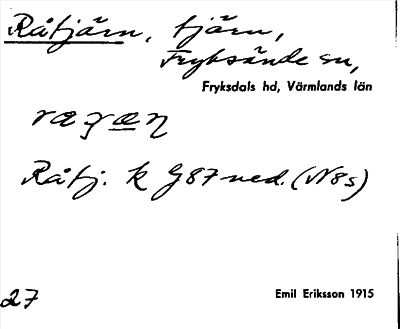 Råtjärn, tjärn,
Fryksände sn,
Fryksdals hd, Värmlands län
Råtj. k G87 ned. (N8s)
27
Emil Eriksson 1915